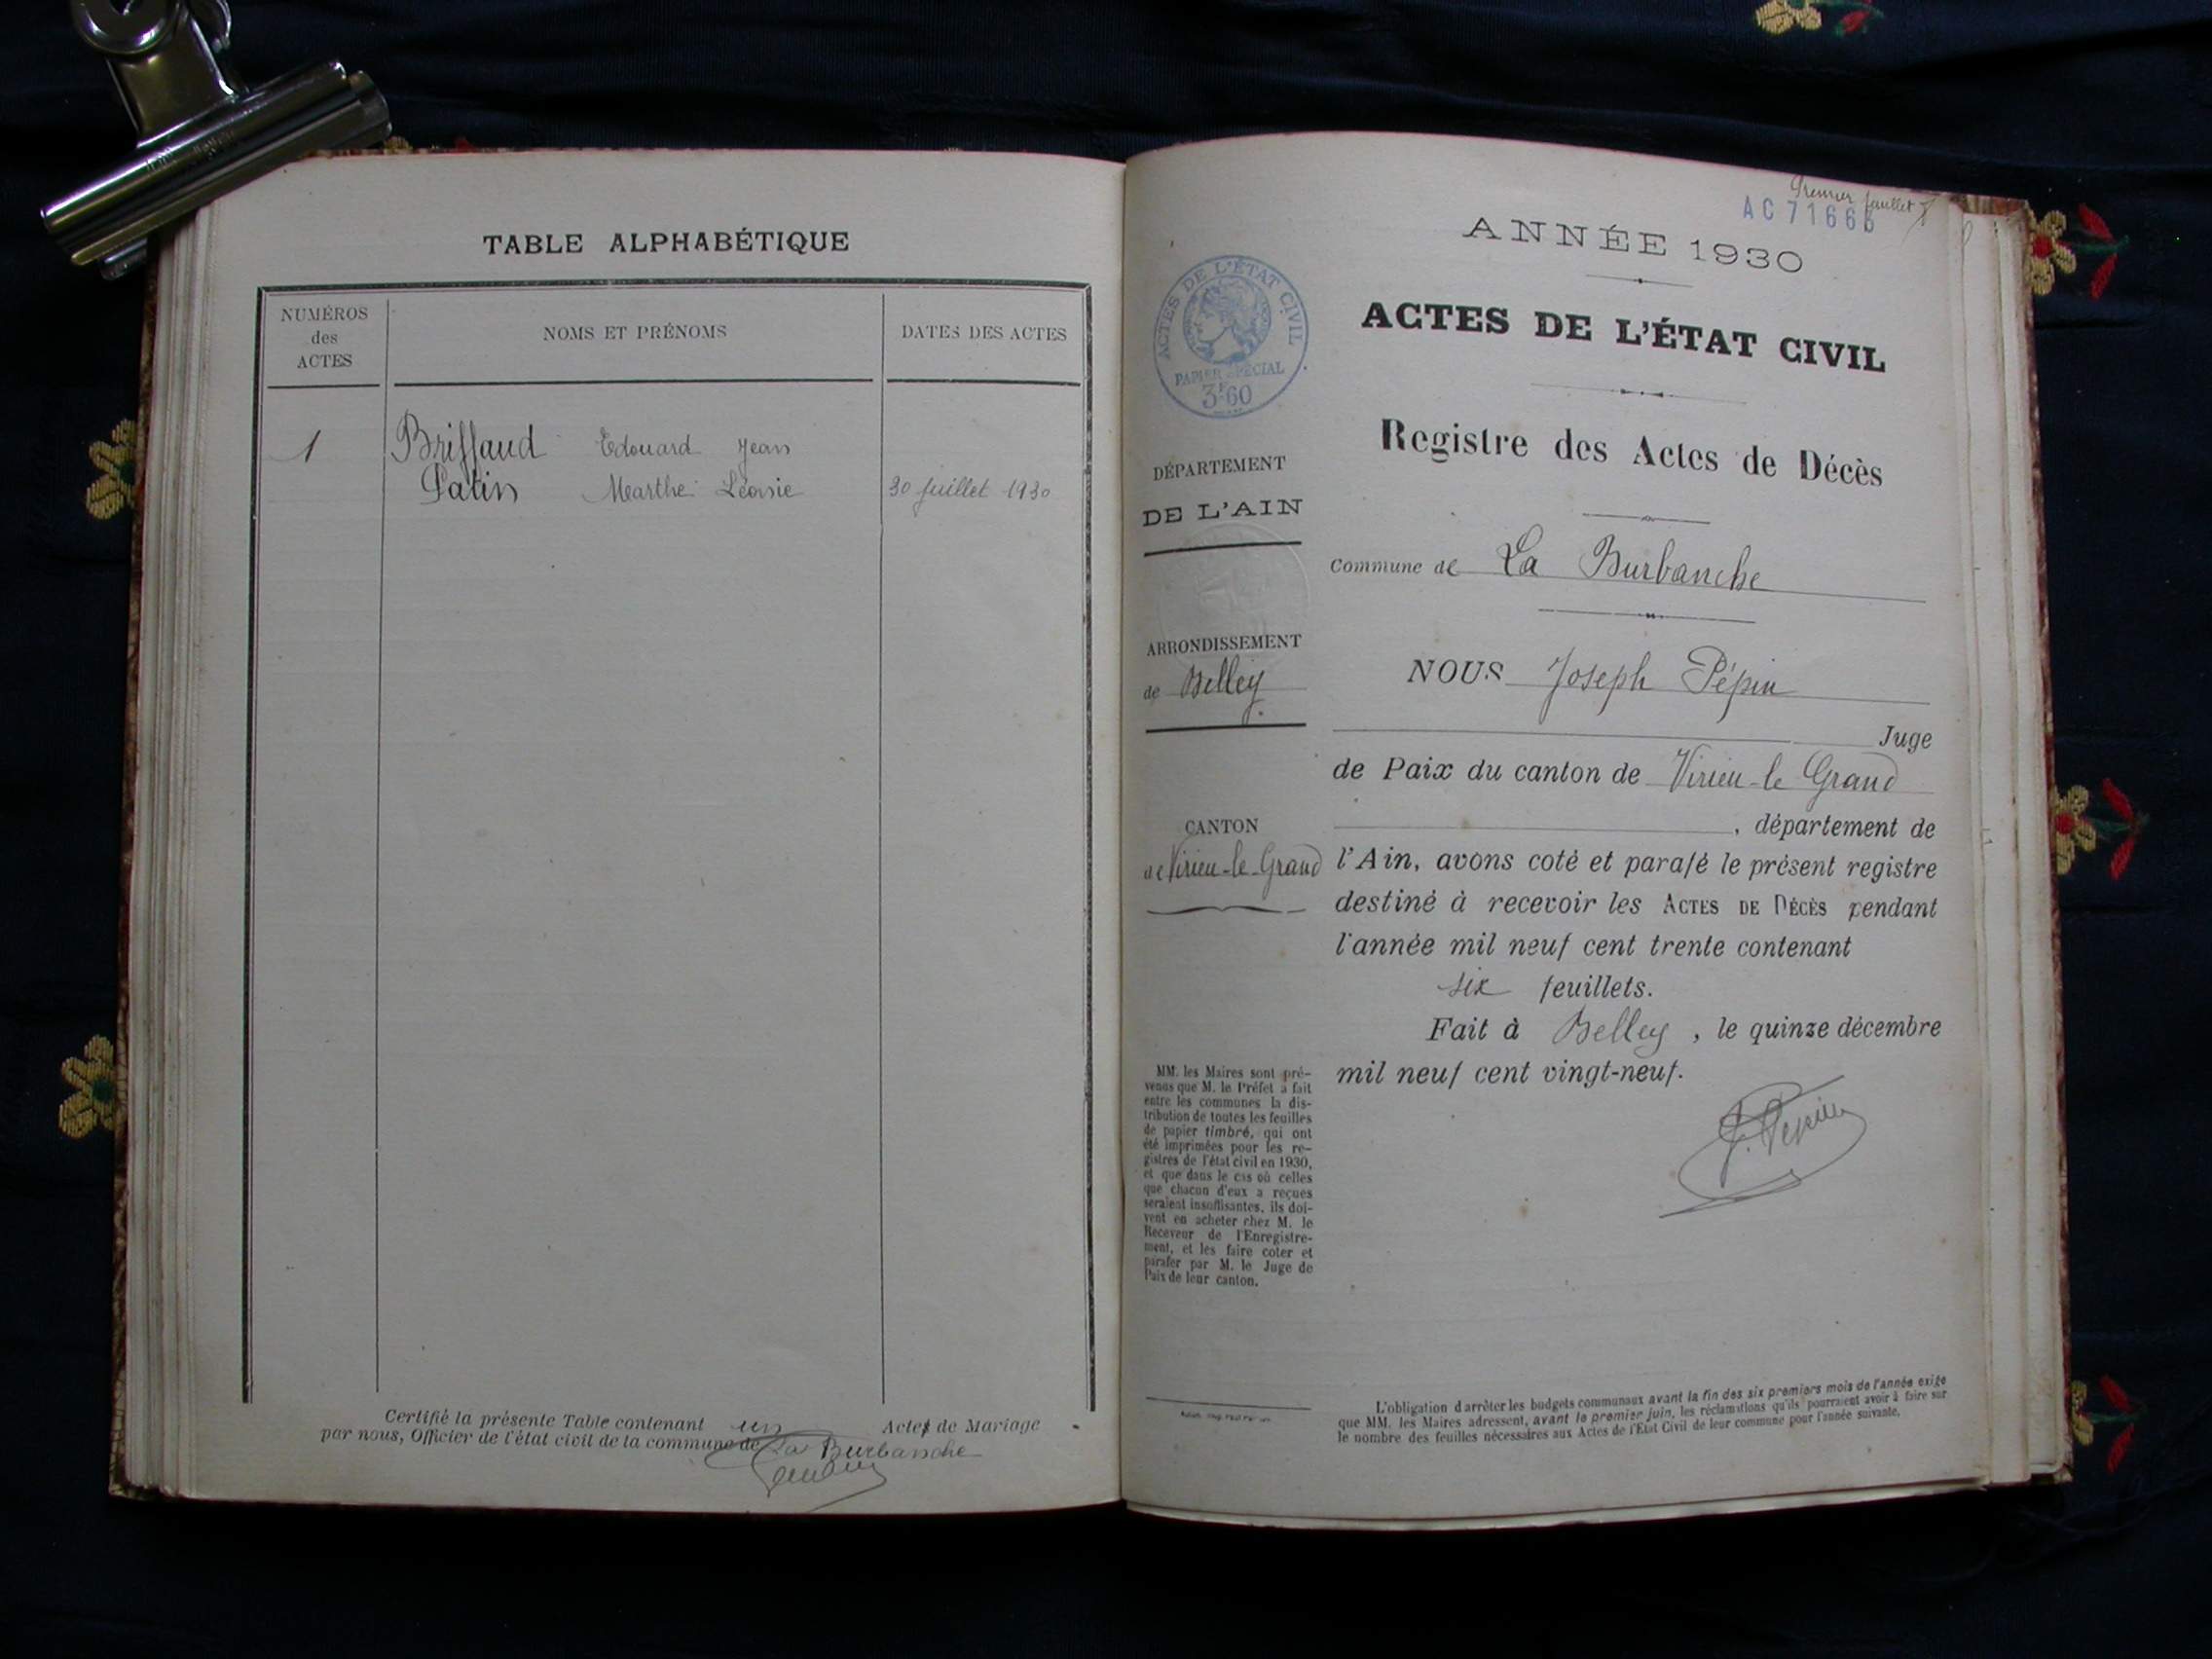 TABLE ALPHABÉTIQUE
NUMÉROS
des
ACTES
NOMS ET PRÉNOMS
DATES DES ACTES
1 Briffaud Edouard Jean
Patin Marthe Léonie 30 Juillet 1930
Certifié la présente Table contenant un Actes de Mariage
par nous, Officier de l'état civil de la commune de La Burbanche
Premier feuillet
AC 71666
ANNÉE 1930
ACTES DE L'ÉTAT CIVIL
PAPIER SPÉCIAL
3F60
ACTES DE L'ÉTAT CIVIL
Registre des Actes de Décès
DÉPARTEMENT
DE L'AIN
Commune de La Burbanche
ARRONDISSEMENT
de Belley
NOUS Joseph Pépin
Juge
de Paix du canton de Virieu-le Grand
CANTON
de Virieu-le-Grand
, département de
l'Ain, avons coté et parafé le présent registre
destiné à recevoir les ACTES DE DÉCÈS pendant
l'année mil neuf cent trente contenant
six feuillets.
Fait à Belley, le quinze décembre
mil neuf cent vingt-neuf.
J. Pépin
MM. les Maires sont pré-
venus que M. le Préfet a fait
entre les communes la dis-
tribution de toutes les feuilles
de papier timbré, qui ont
été imprimées pour les re-
gistres de l'état civil en 1930,
et que dans le cas où celles
que chacun d'eux a reçues
seraient insuffisantes, ils doi-
vent en acheter chez M. le
Receveur de l'Enregistre-
ment, et les faire coter et
parafer par M. le Juge de
Paix de leur canton.
L'obligation d'arrêter les budgets communaux avant la fin des six premiers mois de l'année exige
que MM. les Maires adressent, avant le premier juin, les réclamations qu'ils pourraient avoir à faire sur
le nombre des feuilles nécessaires aux Actes de l'État Civil de leur commune pour l'année suivante.